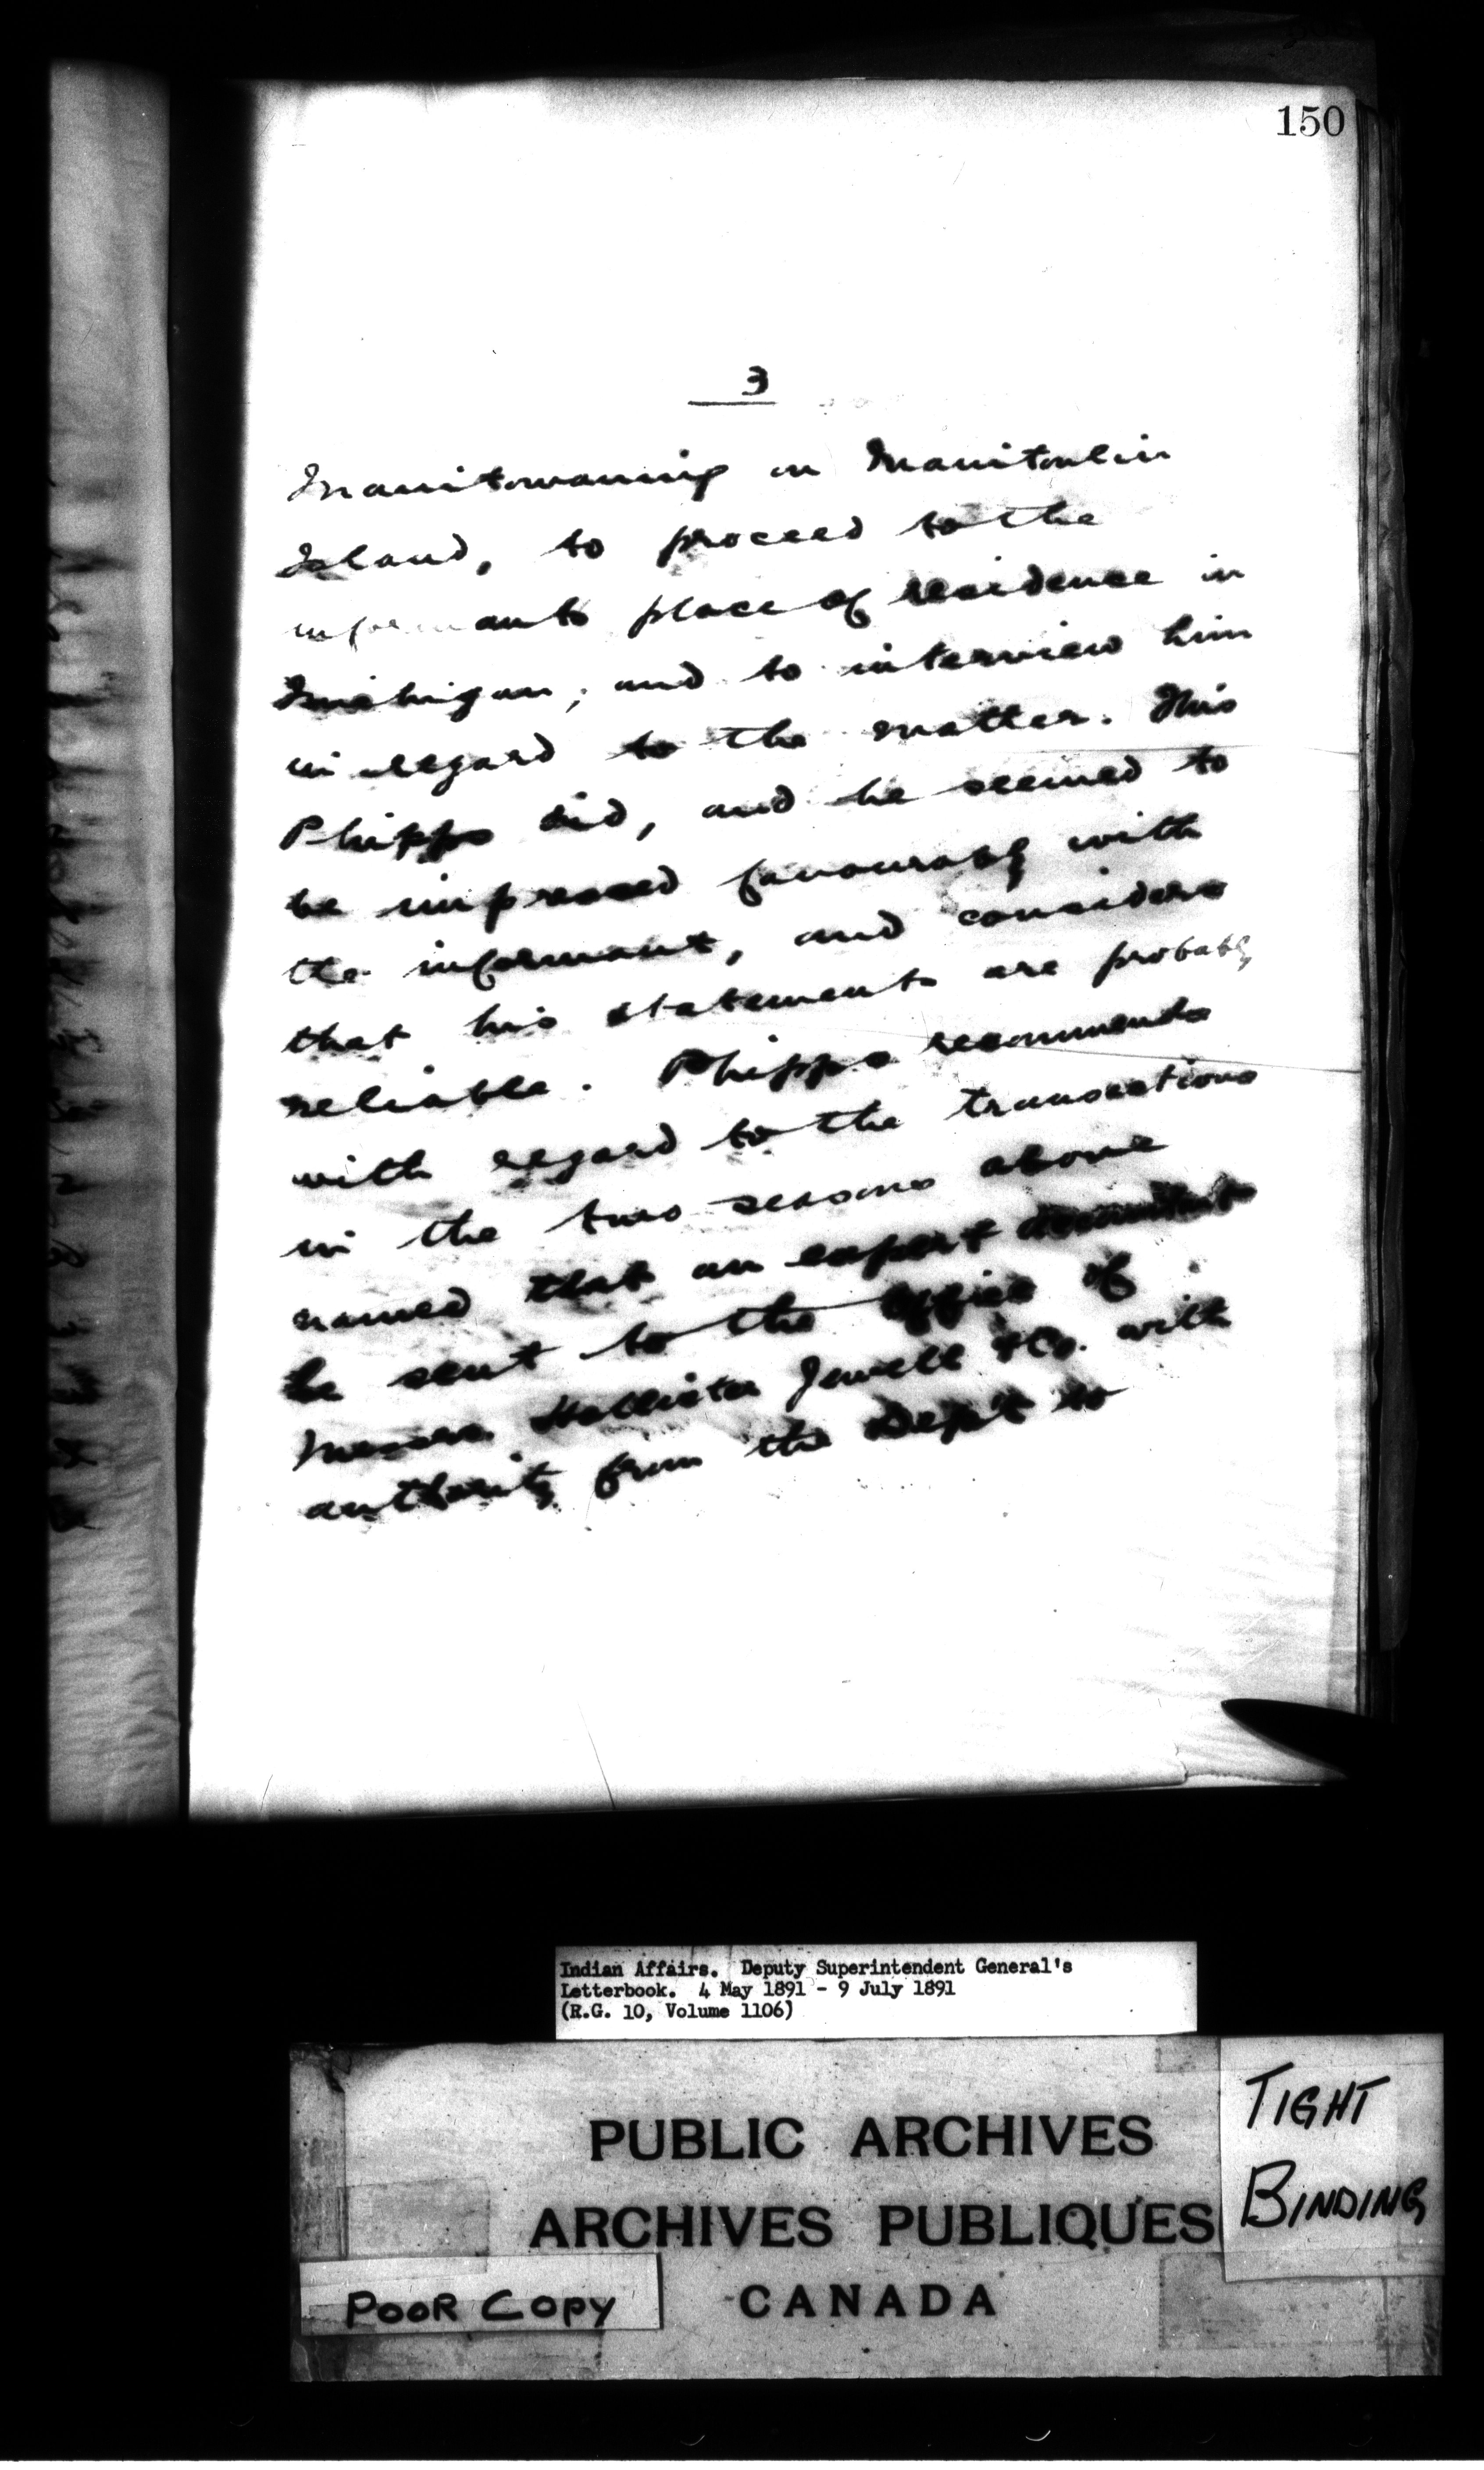 150
3
Manitowaning on Manitoulin
Island, to proceed to the
informants place of residence in
Michigan, and to interview him
in regard to the matter. This
Phipps did, and he seemed to
be impressed favourably with
the informant, and considers
that his statements are probably
reliable. Phipps recommends
with regard to the transactions
in the two seasons above
named that an expert accountant
be sent to the office of
Messrs Hollister Jewell &Co. with
authority from the Dep't to
Indian Affairs. Deputy Superintendent General's
Letterbook. 4 May 1891 - 9 July 1891
(R.G. 10, Volume 1106)
PUBLIC ARCHIVES
ARCHIVES PUBLIQUES
CANADA
TIGHT
BINDING
POOR COPY